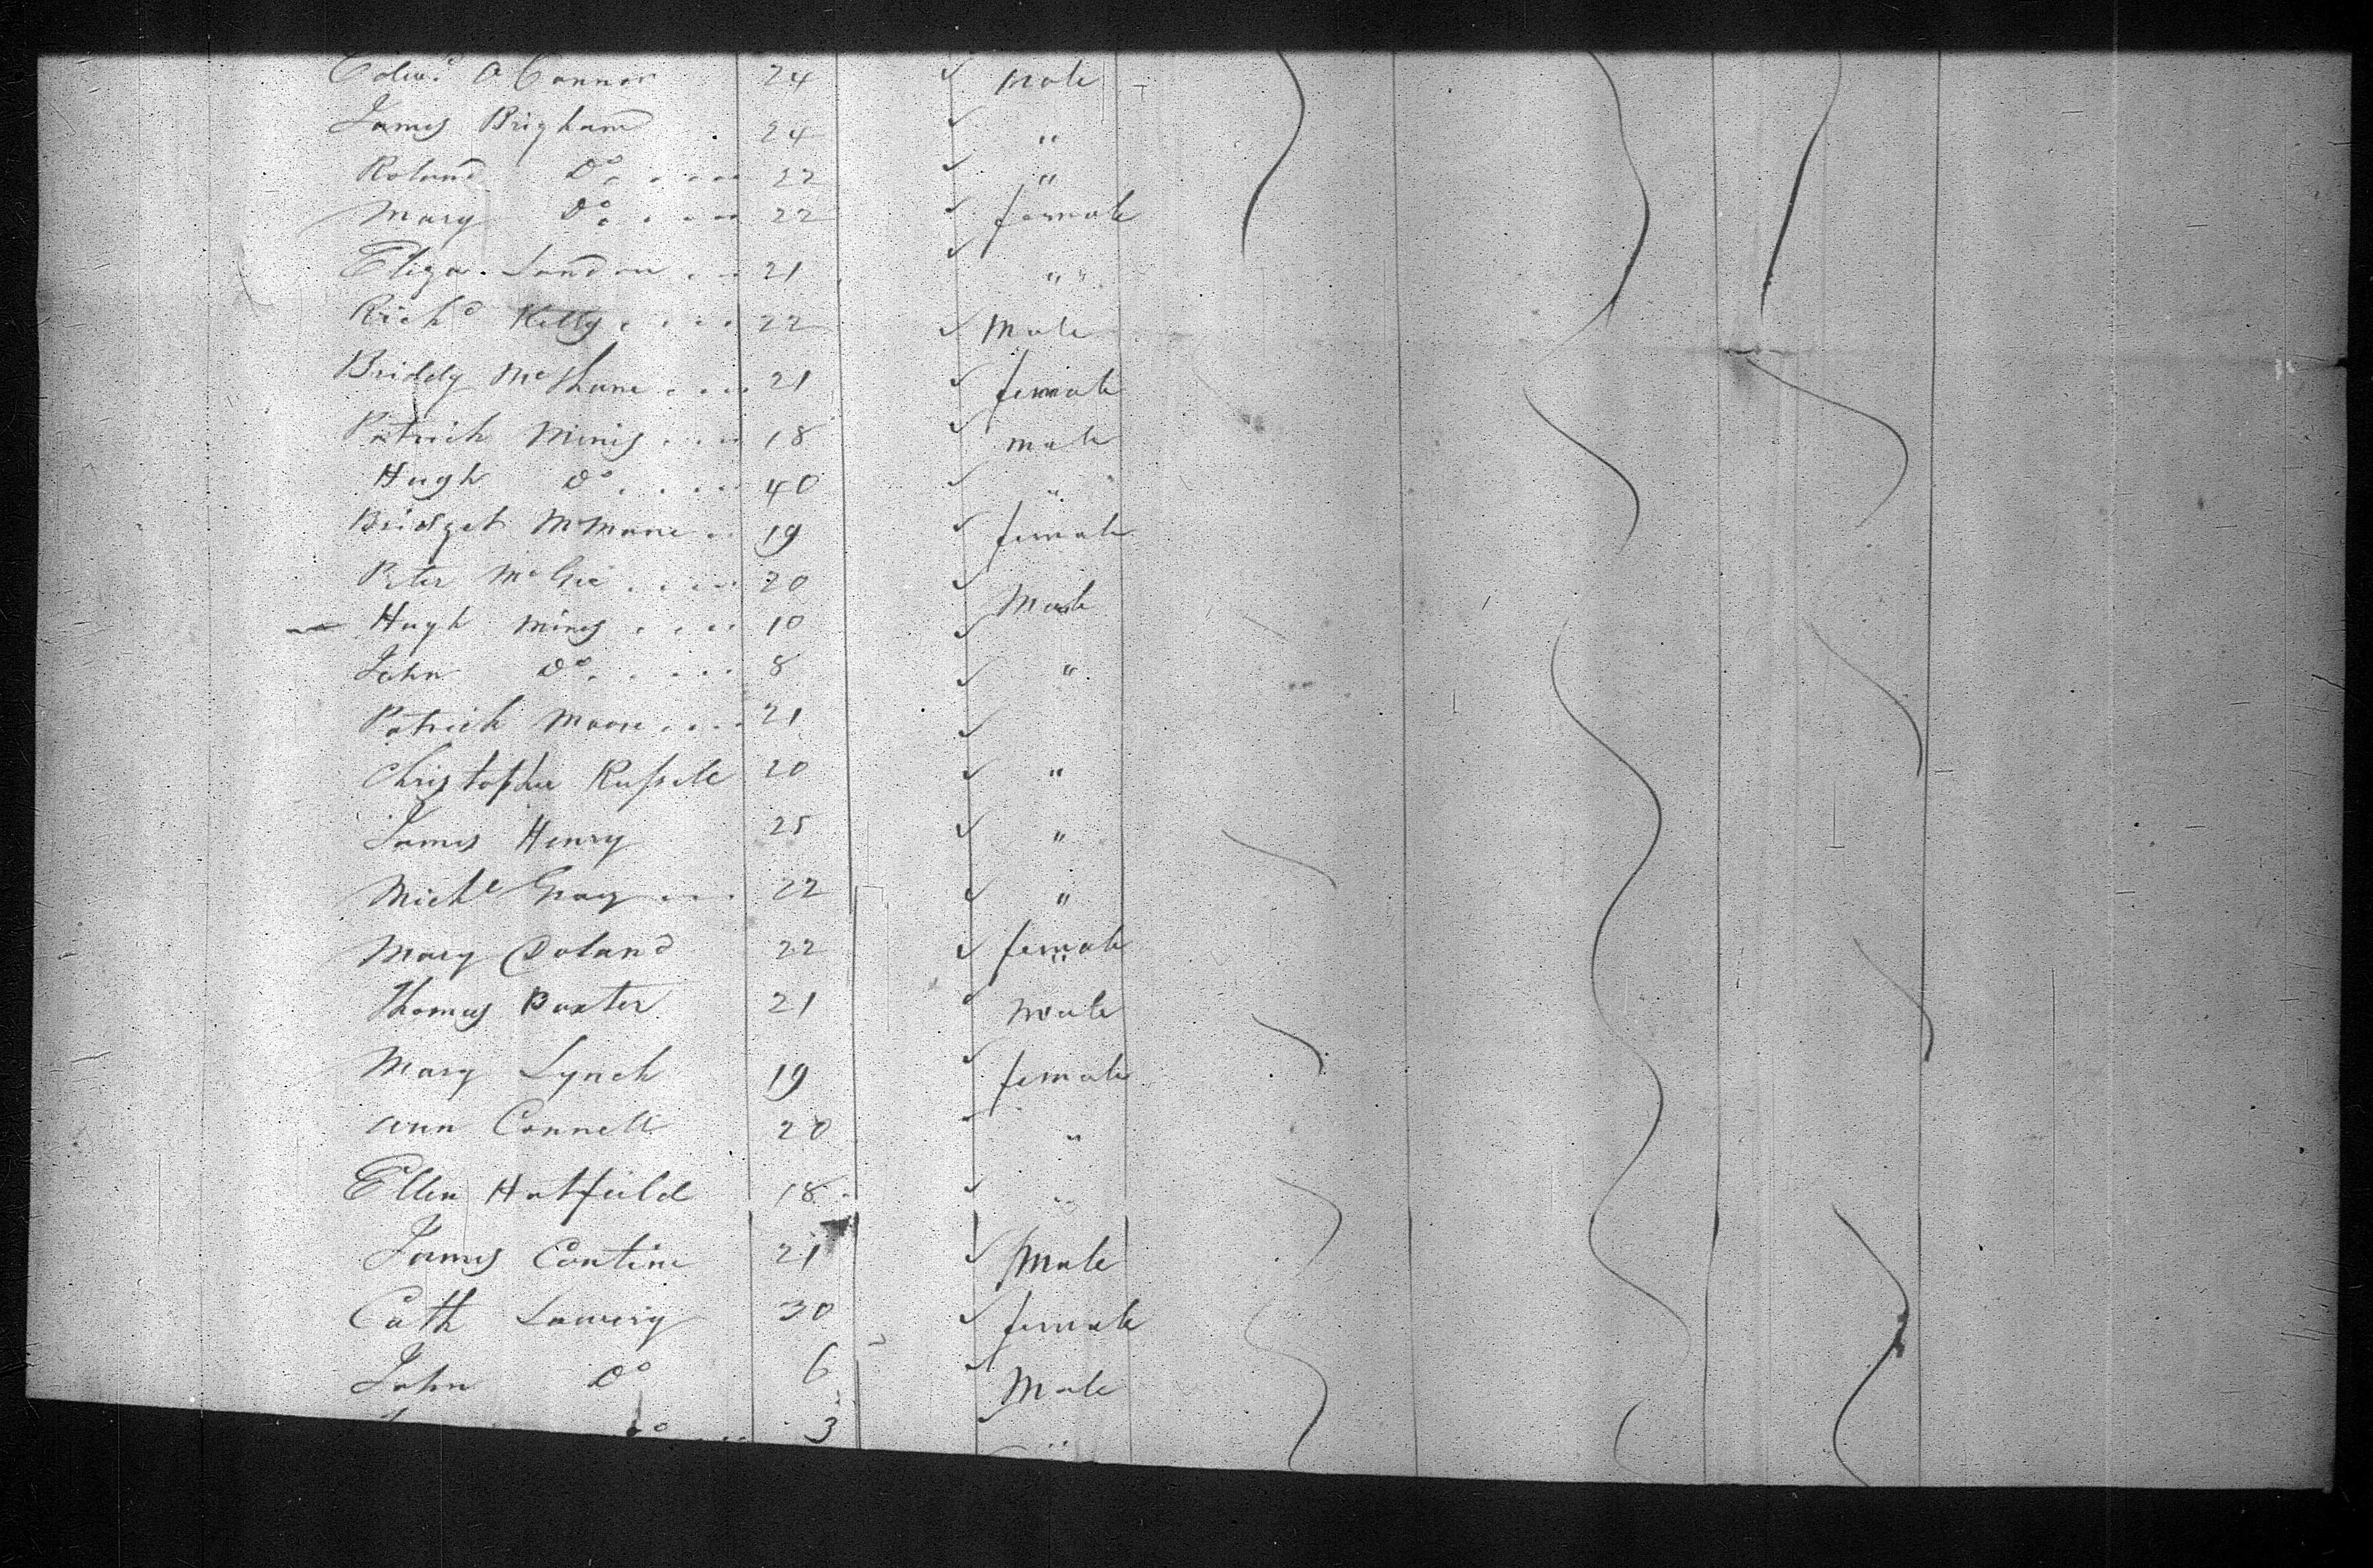 Edwd O Connor 24 ✓ male
James Brigham . 24 ✓ "
Roland Do . . . . 22 ✓ "
Mary Do . . . . 22 ✓ female
Eliza Landon . . . 21 ✓ " "
Richd Kelly . . . . 22 ✓ Male
Briddy McShane . . . . 21 ✓ female
Patrick Minis . . . . 18 ✓ male
Hugh Do . . . . . 40 ✓ "
Bridget McMane . . 19 ✓ female
Peter McGee . . . . . 20 ✓ Male
Hugh Mines . . . . 10 ✓
John Do . . . . . 8 ✓ "
Patrick Moore . . . . 21 ✓
Christopher Russell 20 ✓ "
James Henry 25 ✓ "
Michl Gray . . . 22 ✓ "
Mary Doland 22 ✓ female
Thomas Baxter 21 ✓ male
Mary Lynch 19 ✓ female
Ann Connell 20 ✓ "
Ellen Hatfield 18 ✓ "
James Contine 21 ✓ Male
Cath Lowery 30 ✓ female
John Do 6 ✓ Male
Do 3 ✓ "